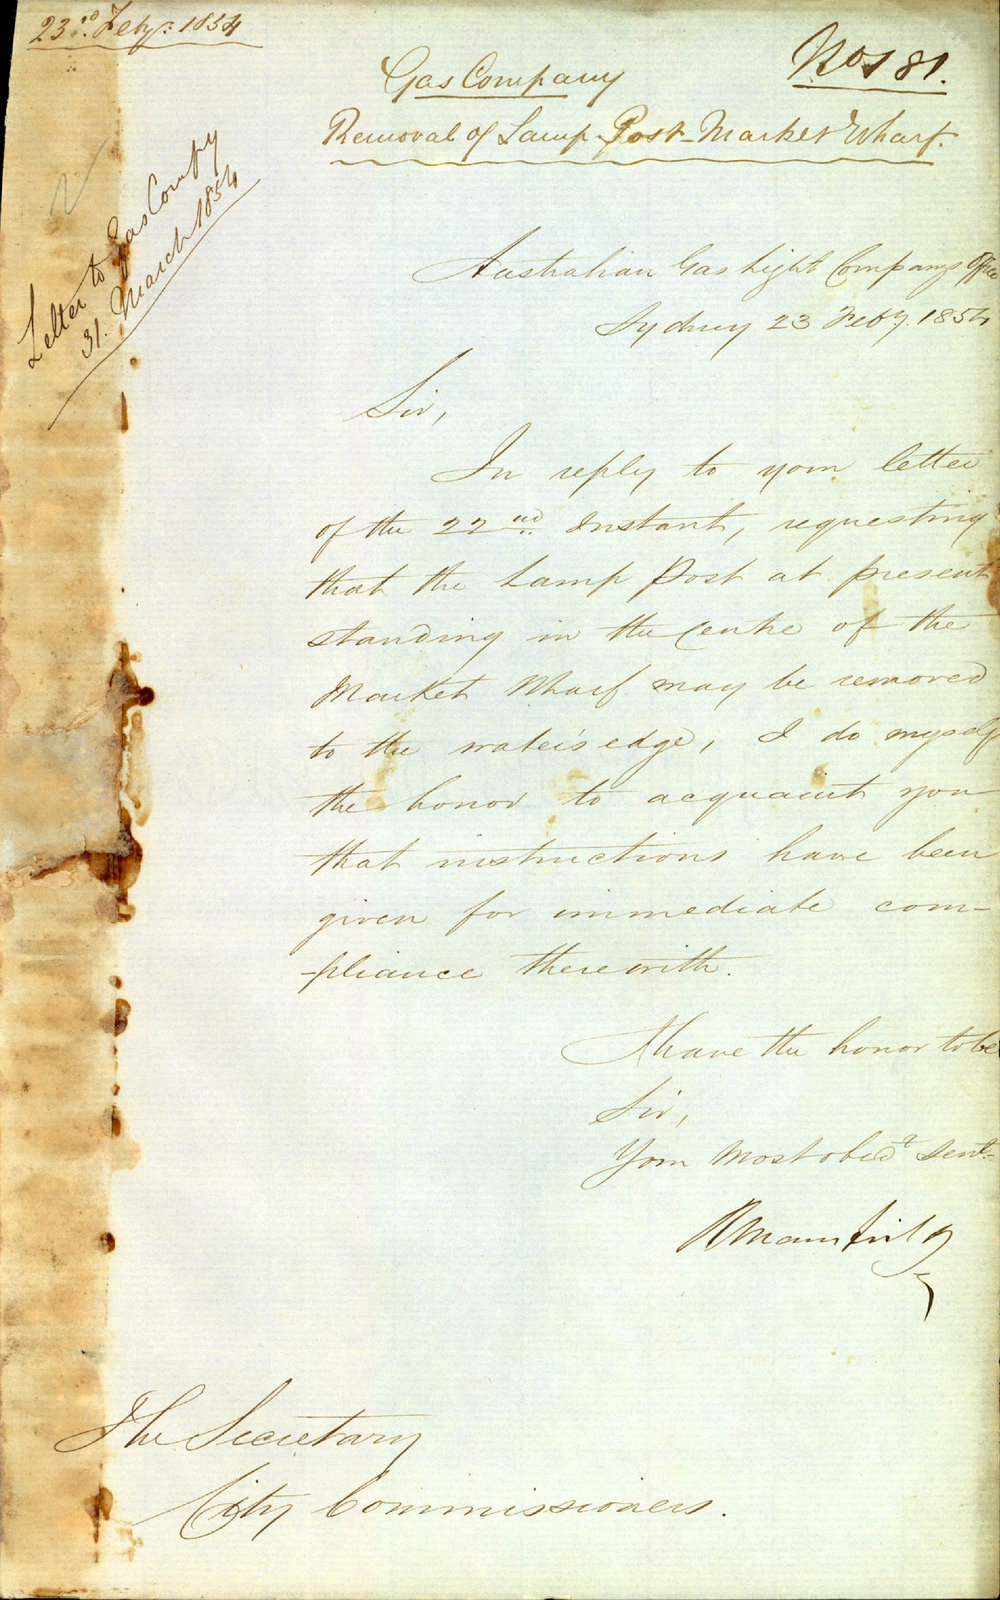 23rd Feby. 1854
No 181.
Gas Company
Removal of Lamp Post - Market Wharf.
Letter to Gas Compy
31. March 1854
Australian Gas Light Company's Office
Sydney 23 Feby. 1854
Sir,
In reply to your letter
of the 22nd Instant, requesting
that the Lamp Post at present
standing in the Centre of the
Market Wharf may be removed
to the water's edge, I do myself
the honor to acquaint you
that instructions have been
given for immediate com-
-pliance therewith.
I have the honor to be
Sir,
Your Most obedt Servt
The Secretary
City Commissioners.